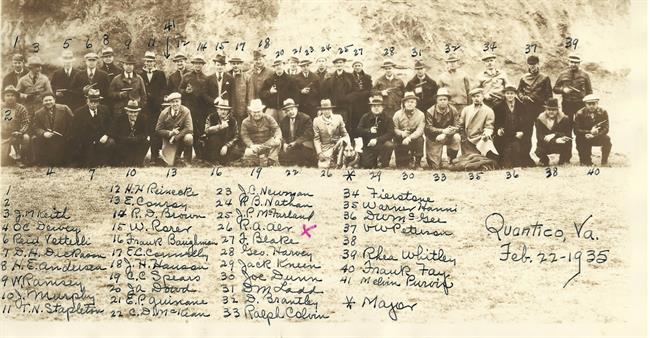 41
1 3 5 6 8 9 11 12 14 15 17 28 20 21 23 24 25 27 28 31 32 34 37 39
2
4 7 10 13 16 19 22 26 * 29 30 33 35 36 38 40
1
2
3 J.M. Keith
4 O.C. Dewey
6 Reid Vettelli
7 D.H. Dickason
8 H.E. Andersen
9 W. Ramsey
10 J. Murphy
11 T.N. Stapleton
12 H.H. Reinecke
13 E. Conroy
14 R.D. Brown
15 W. Rorer
16 Frank Baughman
17 F.C. Connelly
18 J.H. Hanson
19 C.E. Spears
20 Ja Dowd
21 E.P. Guinane
22 C.D. McKean
23 J.C. Newman
24 R.B. Nathan
25 J.P. McFarland
26 R.A. x
27 F. Blake
28 Geo. Harvey
29 Jack Kneen
30 Joe Dunn
31 D.M. Ladd
32 D. Brantley
33 Ralph Colvin
34 Fierstone
35 Warner Hanni
36 DW McGee
37 VW Peterson
38
39 Rhea Whitley
40 Frank Fay
41 Melvin Purvis
* Major
Quantico, Va.
Feb. 22-1935